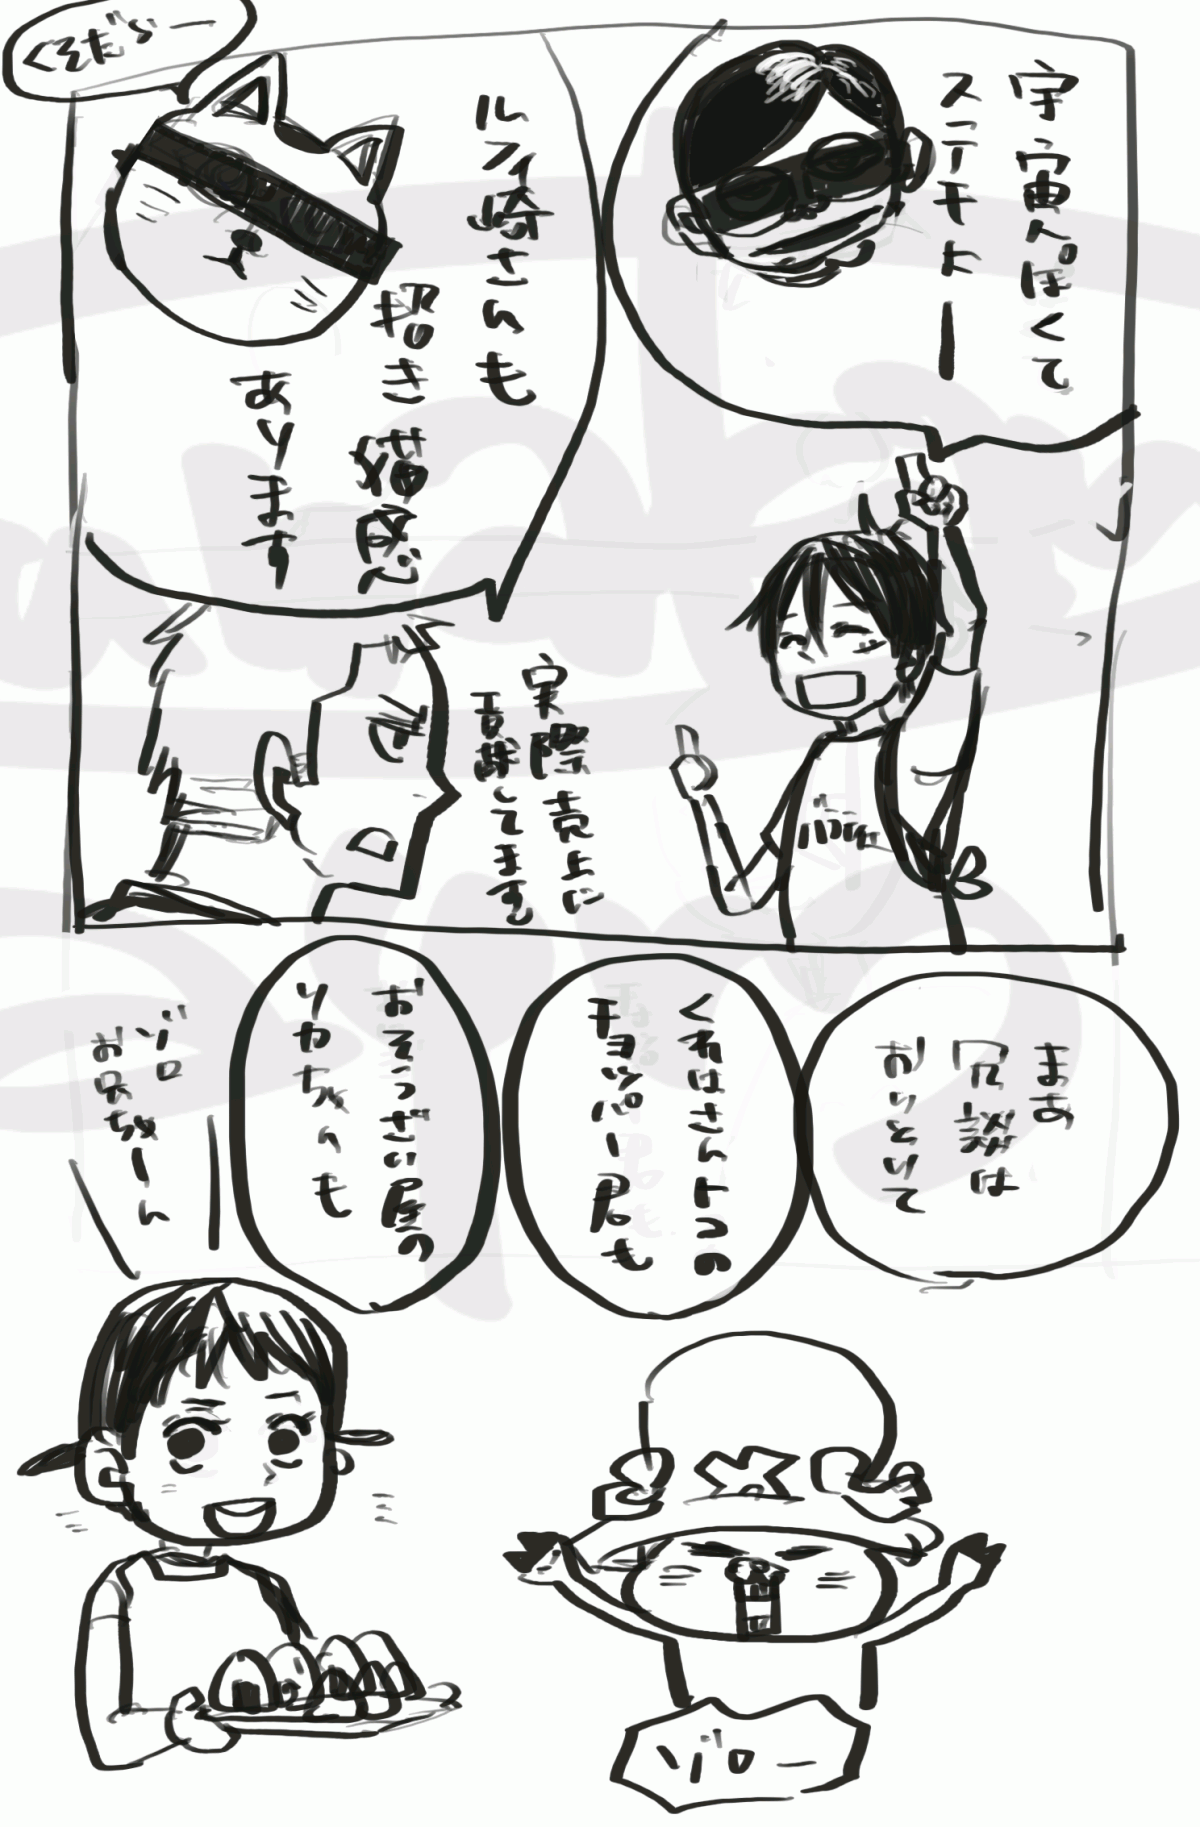 宇宙人ぽくて
ステキトー
ルフィ崎さんも
招き猫感
あります
くそだらー
実際売上に
貢献してます
まあ
冗談は
おいといて
くれはさんトコの
チョッパー君も
おそうざい屋の
リカちゃんも
ゾロ
お兄ちゃーん
ゾロー